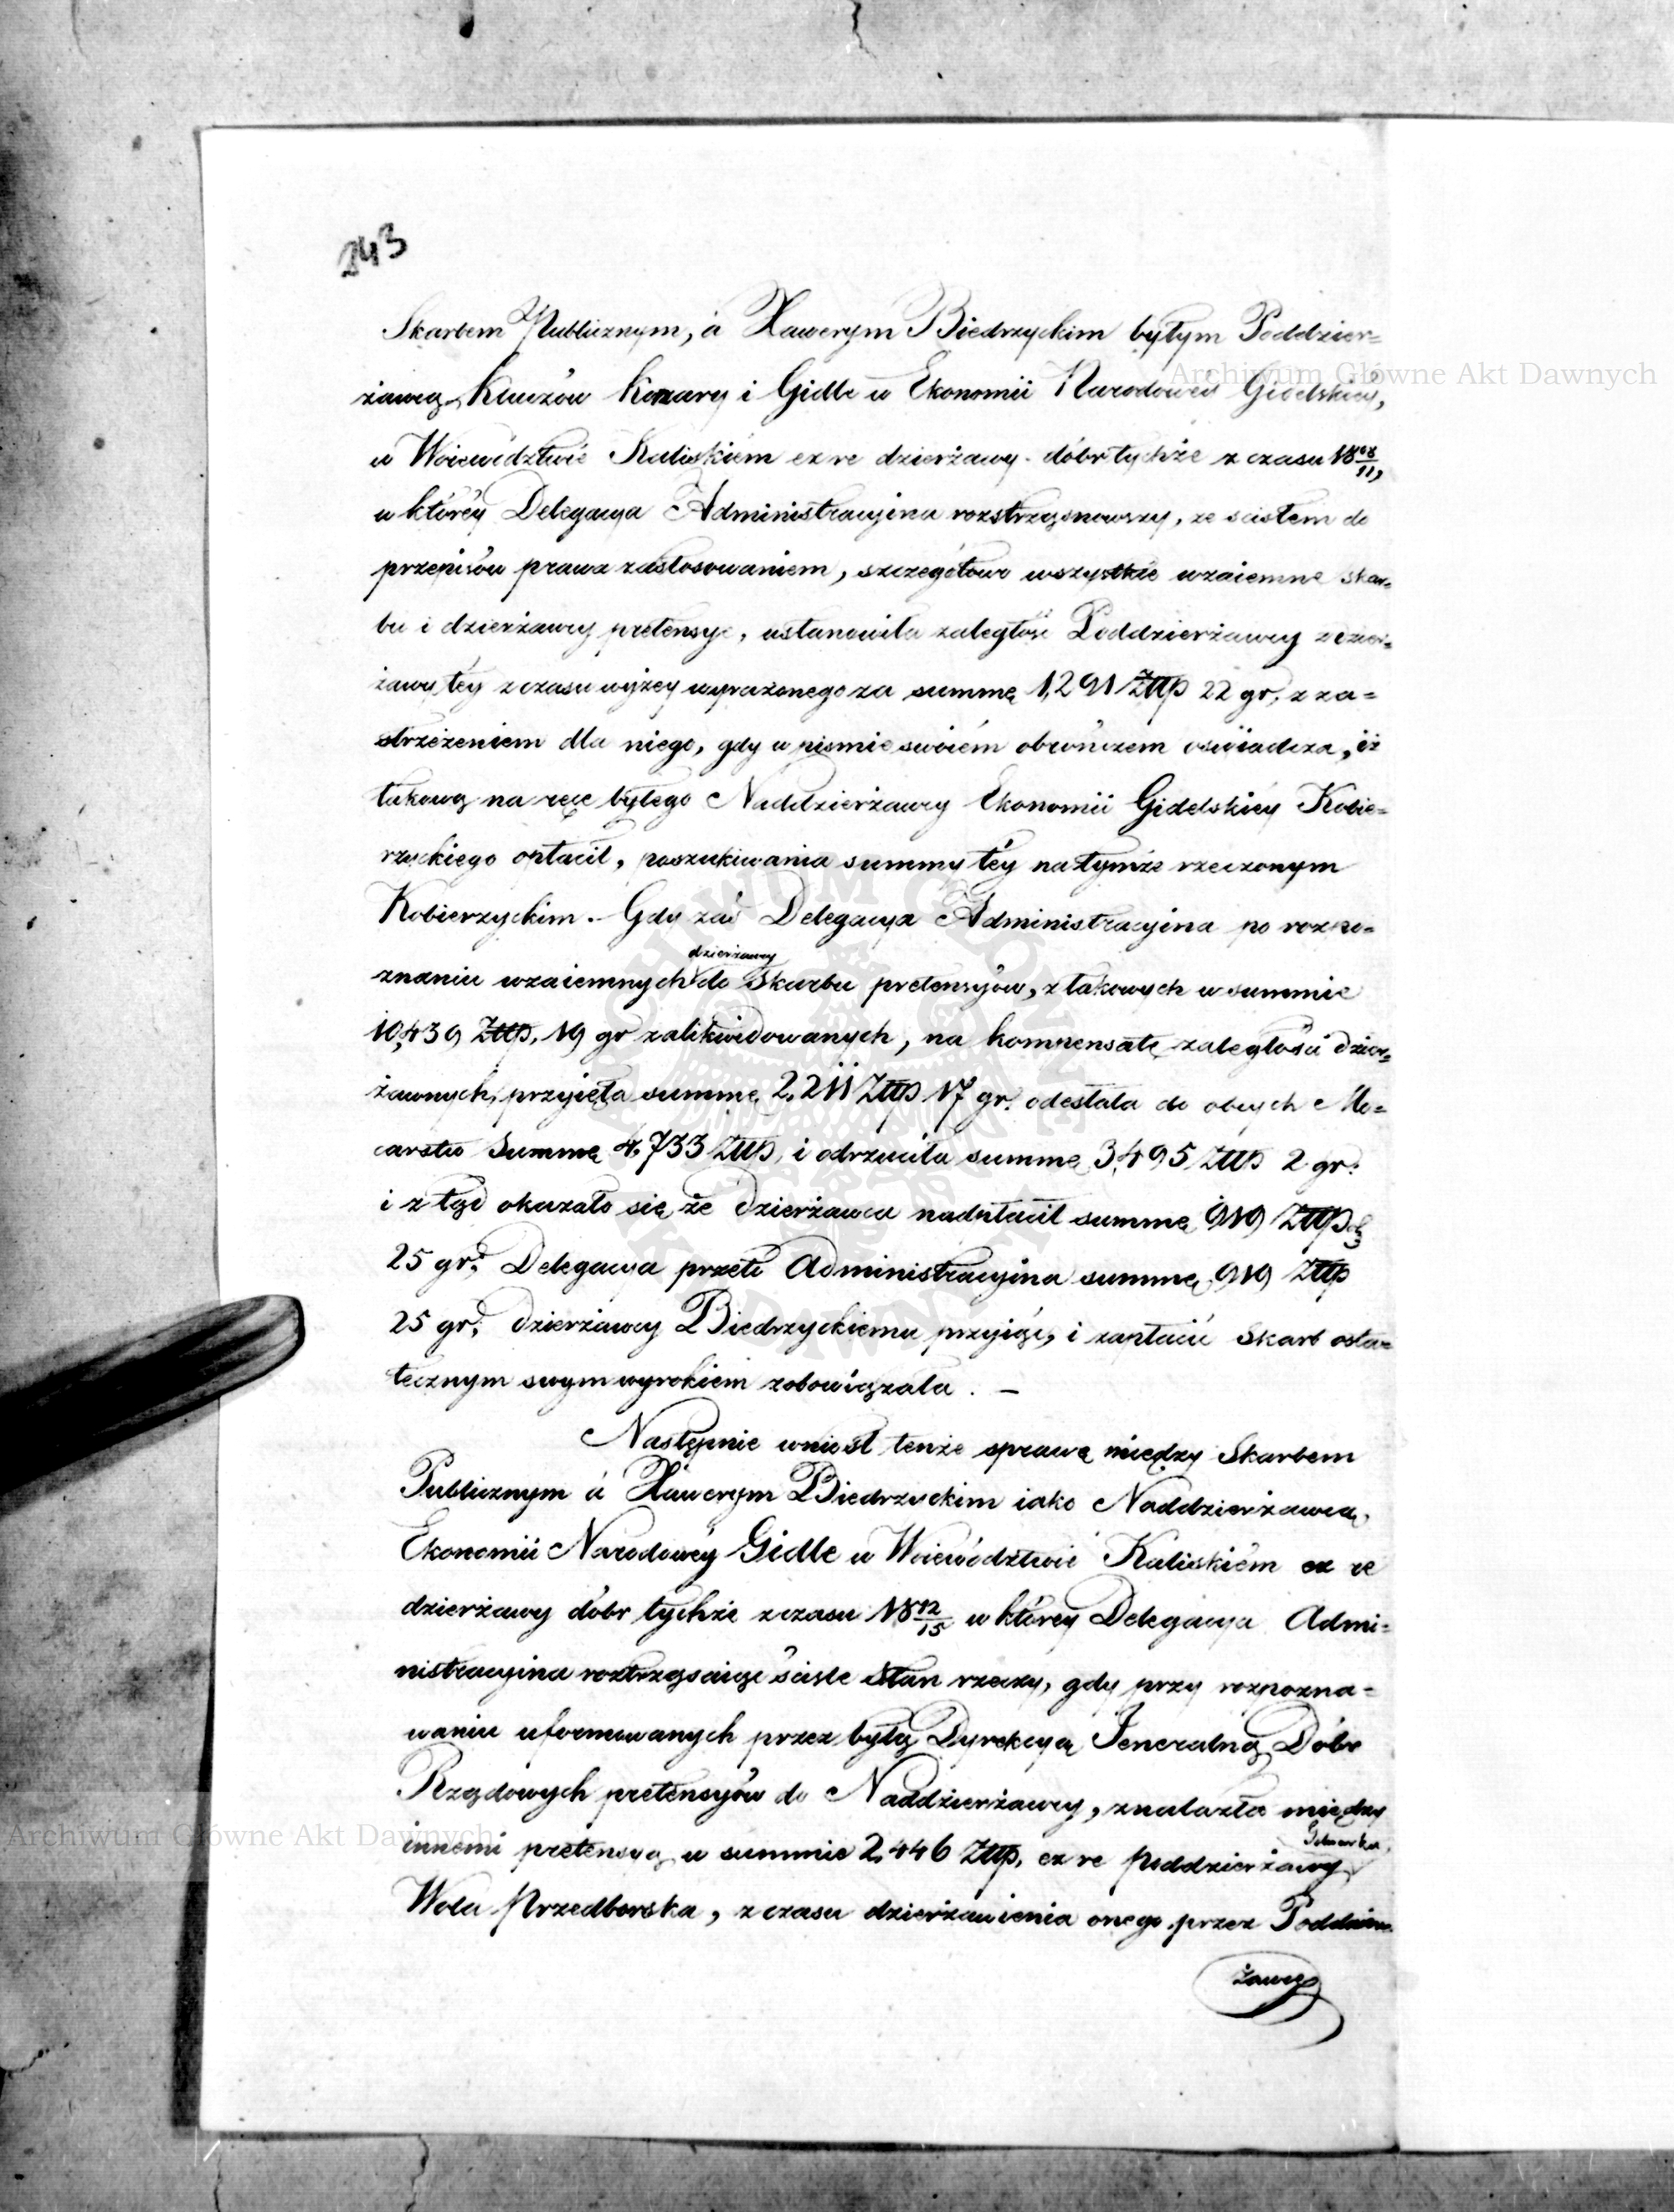 243
Skarbem Publicznym, á Xawerym Biedrzyckim byłym Poddzier=
żawcą Kluczów Kozary i Gidle w Ekonomii Narodowéy Gidelskiéy,
w Woiewództwie Kaliskiém ex re dzierżawy dóbr tychże z czasu 18 08/11,
w któréy Delegacya Administracyina rozstrzygnowszy, ze scisłem do
przepisów prawa zastosowaniem, szczegółowo wszystkie wzaiemne skar=
bu i dzierżawcy pretensye, ustanowiła zaległość Poddzierżawcy z dzier=
żawy téy z czasu wyżey wyrażonego za summę 1,291 Złłp 22 gr, z za=
strzeżeniem dla niego, gdy w pismie swoiém obrończem oświadcza, iż
takową na ręce byłego Naddzierżawcy Ekonomii Gidelskiéy Kobie=
rzyckiego opłacił, poszukiwania summy téy na tymże rzeczonym
Kobierzyckim. Gdy zaś Delegacya Administracyina po rozpo=
dzierżawcy
znaniu wzaiemnych do Skarbu pretensyów, z takowych w summie
10,439 Złłp. 19 gr zalikwidowanych, na kompensatę zaległości dzier=
żawnych, przyięła summę 2,211 Złłp 17 gr. odesłała do obcych Mo=
carstw Summę 4,733 Złłp, i odrzuciła summę 3,495 Złłp 2 gr:
i z tąd okazało się że Dzierżawca nadpłacił summę 919 Złłp
25 gr: Delegacya przeto Administracyina summę 919 Złłp
25 gr: Dzierżawcy Biedrzyckiemu przyiąć, i zapłacić Skarb osta=
tecznym swym wyrokiem zobowiązała. —
Następnie wniósł tenże sprawę między Skarbem
Publicznym á Xawerym Biedrzyckim iako Naddzierżawcą
Ekonomii Narodowéy Gidle w Woiewództwie Kaliskiém ex re
dzierżawy dóbr tychże z czasu 18 12/15 w któréy Delegacya Admi=
nistracyina roztrząsaiąc ściśle stan rzeczy, gdy przy rozpozna=
waniu uformowanych przez byłą Dyrekcyą Jeneralną Dóbr
Rządowych pretensyów do Naddzierżawcy, znalazła między
innemi pretensyą w summie 2,446 Złłp, ex re poddzierżawy
Folwarku
Wola Przedborska, z czasu dzierżawienia onego przez Poddzier=
żawcę
Archiwum Główne Akt Dawnych
Archiwum Główne Akt Dawnych